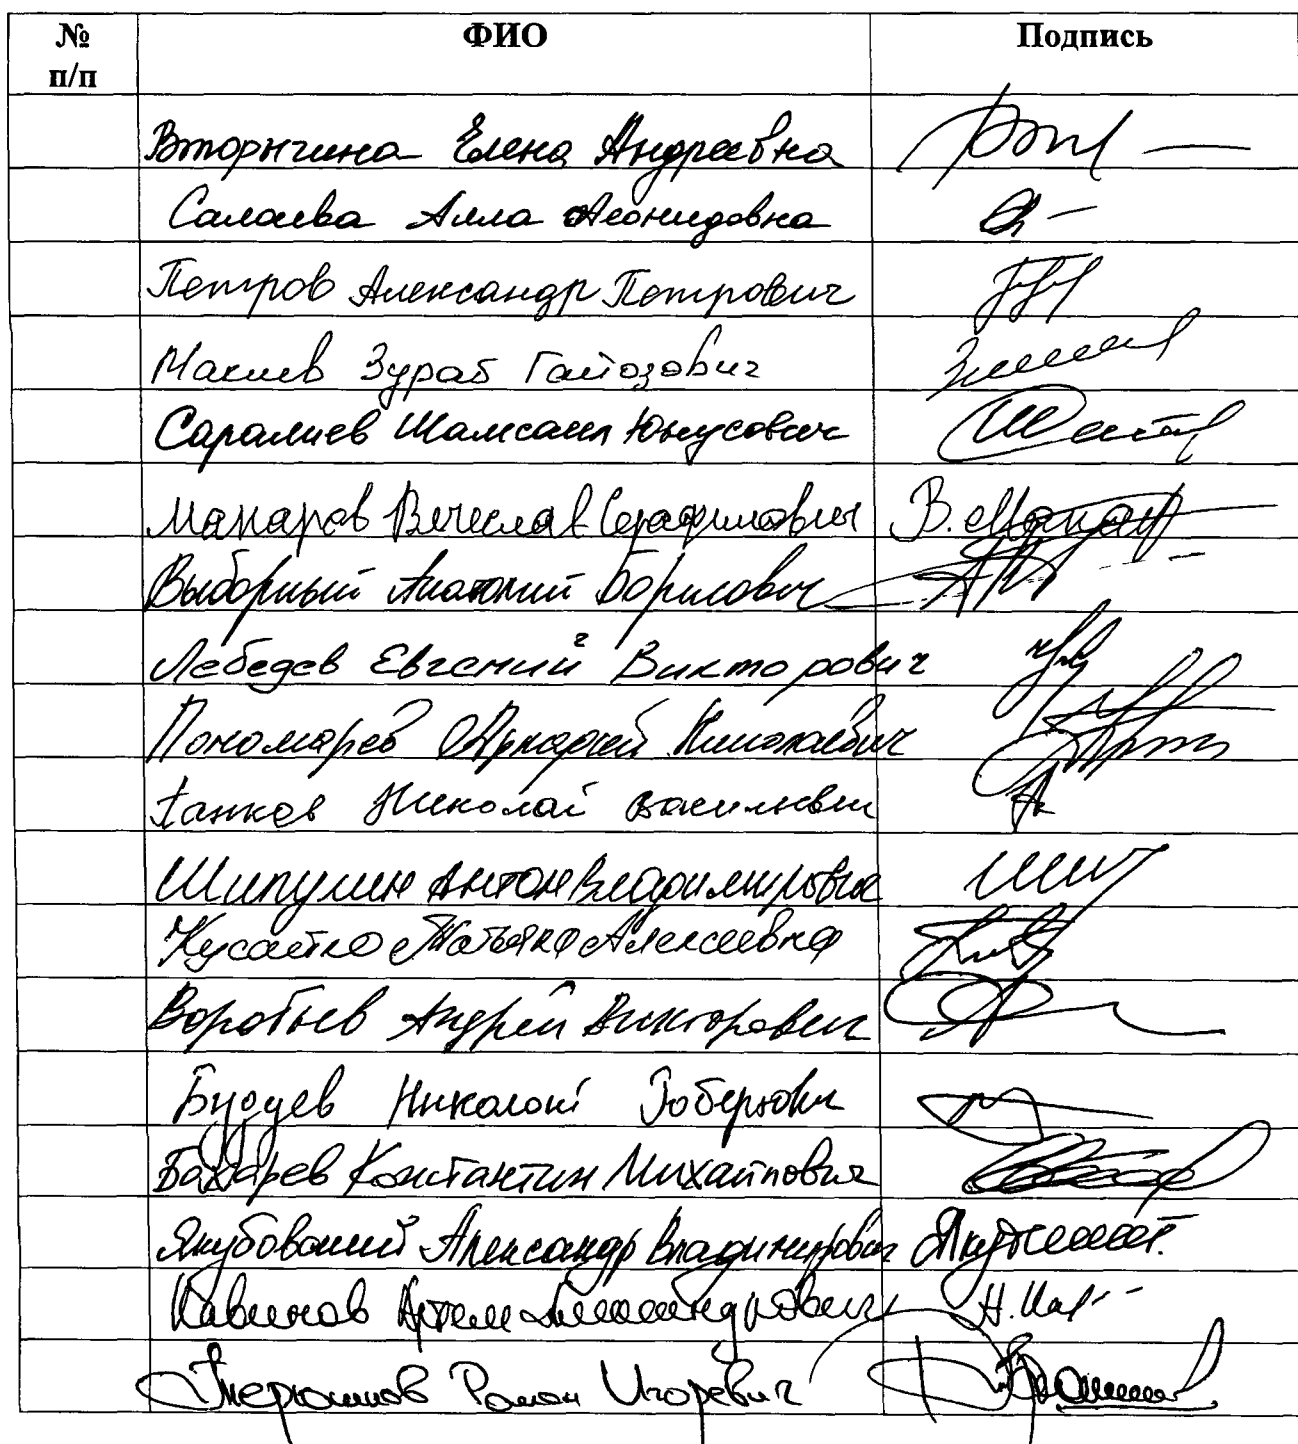 № п/п ФИО Подпись
Вторыгина Елена Андреевна
Салаева Алла Леонидовна
Петров Александр Петрович
Макиев Зураб Гайозович
Саралиев Шамсаил Юнусович
Макаров Вячеслав Серафимович В. Макаров
Выборный Анатолий Борисович
Лебедев Евгений Викторович
Пономарёв Аркадий Николаевич
Панков Николай Васильевич
Шипулин Антон Владимирович
Кусайко Татьяна Алексеевна
Воробьев Андрей Викторович
Будуев Николай Робертович
Бахарев Константин Михайлович
Якубовский Александр Владимирович
Кавинов Артём Александрович
Терюшков Роман Игоревич